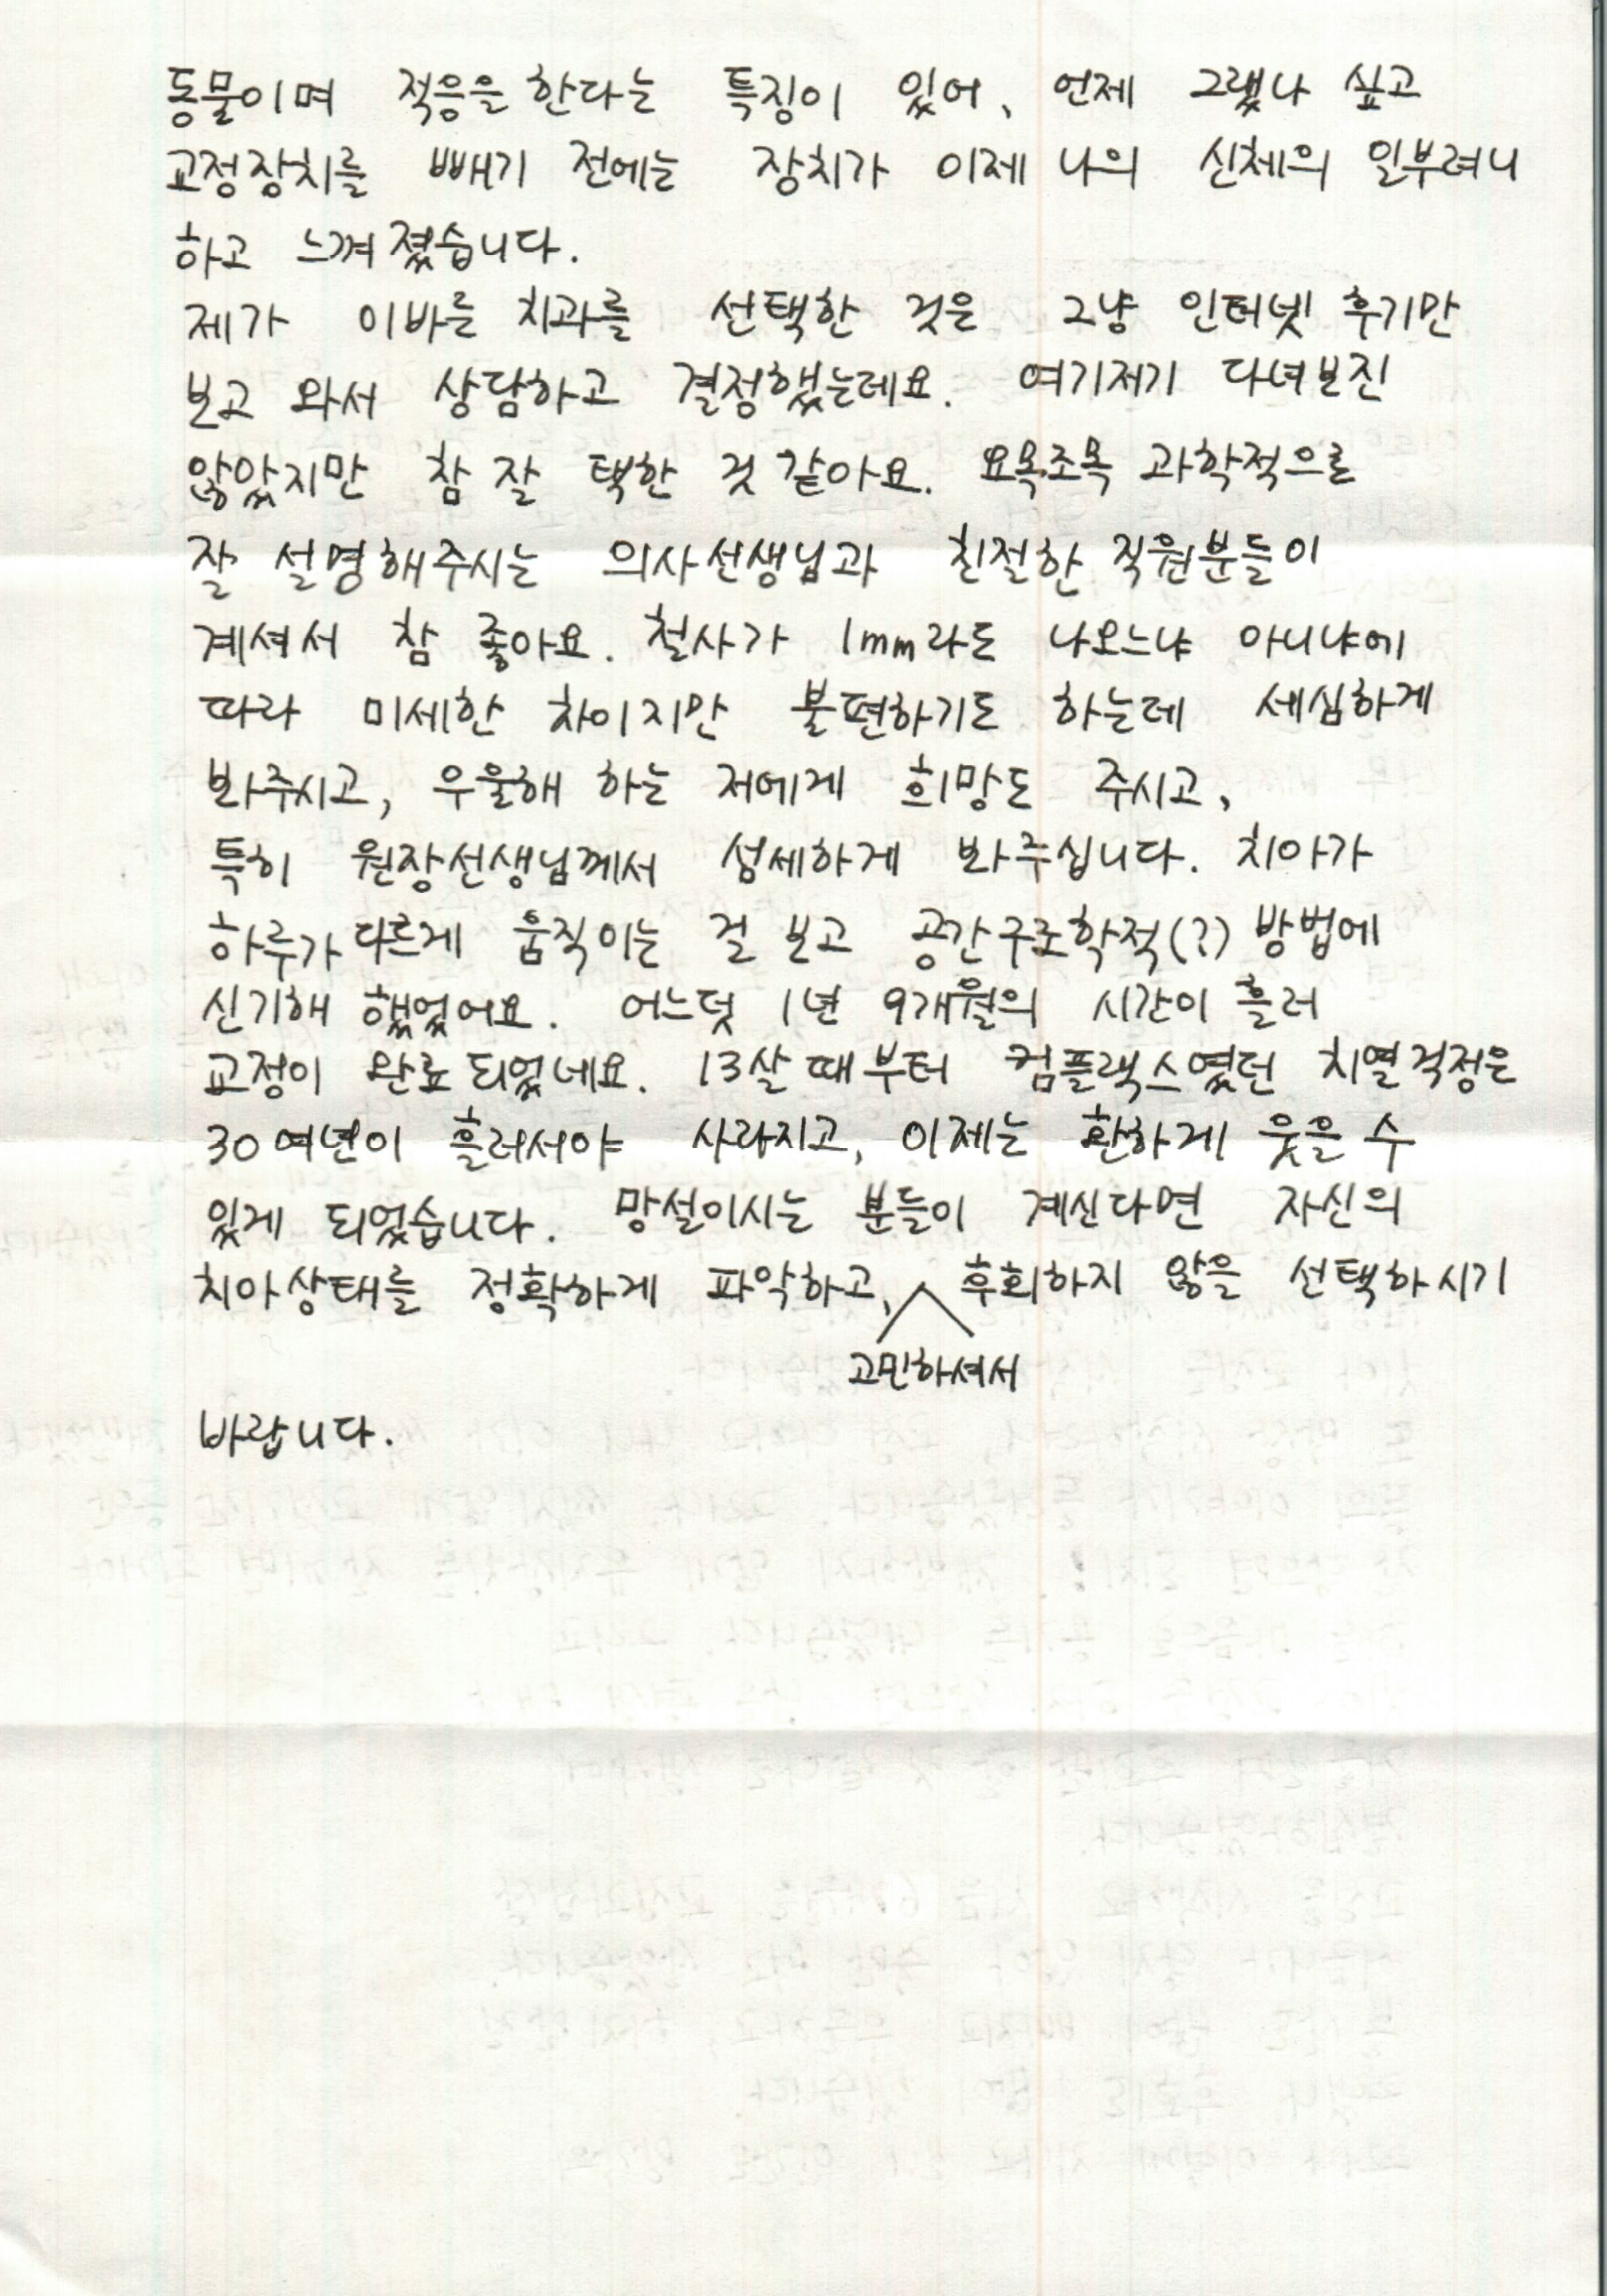 동물이며 적응을 한다는 특징이 있어, 언제 그랬나 싶고
교정장치를 빼기 전에는 장치가 이제 나의 신체의 일부려니
하고 느껴졌습니다.
제가 이바른 치과를 선택한 것은 그냥 인터넷 후기만
보고 와서 상담하고 결정했는데요. 여기저기 다녀보진
않았지만 참 잘 택한 것 같아요. 요목조목 과학적으로
잘 설명해주시는 의사선생님과 친절한 직원분들이
계셔서 참 좋아요. 철사가 1mm라도 나오느냐 아니냐에
따라 미세한 차이지만 불편하기도 하는데 세심하게
봐주시고, 우울해 하는 저에게 희망도 주시고,
특히 원장선생님께서 섬세하게 봐주십니다. 치아가
하루가 다르게 움직이는 걸 보고 공간구조학적(?) 방법에
신기해 했었어요. 어느덧 1년 9개월의 시간이 흘러
교정이 완료 되었네요. 13살 때부터 컴플랙스였던 치열걱정은
30여년이 흘러서야 사라지고, 이제는 환하게 웃을 수
있게 되었습니다. 망설이시는 분들이 계신다면 자신의
치아상태를 정확하게 파악하고, 후회하지 않을 선택하시기
고민하셔서
바랍니다.